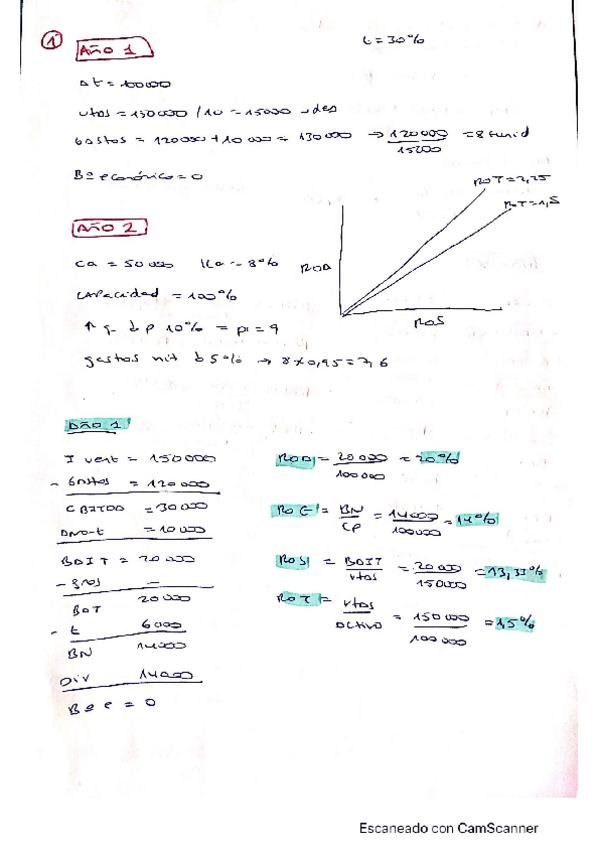 1
AÑO 1
t = 30%
At = 100000
vtas = 150000 / 10 = 15000 uds
Gastos = 120000 + 10000 = 130000 → 120000 / 15000 = 8 €unid
Bº económico = 0
ROT = 2,25
ROT = 1,5
AÑO 2
Ca = 50000 Ka = 8%
ROA
capacidad = 100%
↑ q ↓ p 10% = p1 = 9
ROS
gastos unit ↓ 5% → 8 × 0,95 = 7,6
AÑO 1
I vent = 150000
- Gastos = 120000
CBITDA = 30000
Amo-t = 10000
BAIT = 20000
- gros —
BAT 20000
- t 6000
BN 14000
DIV 14000
Bº e = 0
ROA = 20000 / 100000 = 20%
ROE = BN / CP = 14000 / 100000 = 14%
ROS = BAIT / vtas = 20000 / 150000 = 13,33%
ROT = vtas / activo = 150000 / 100000 = 1,5%
Escaneado con CamScanner